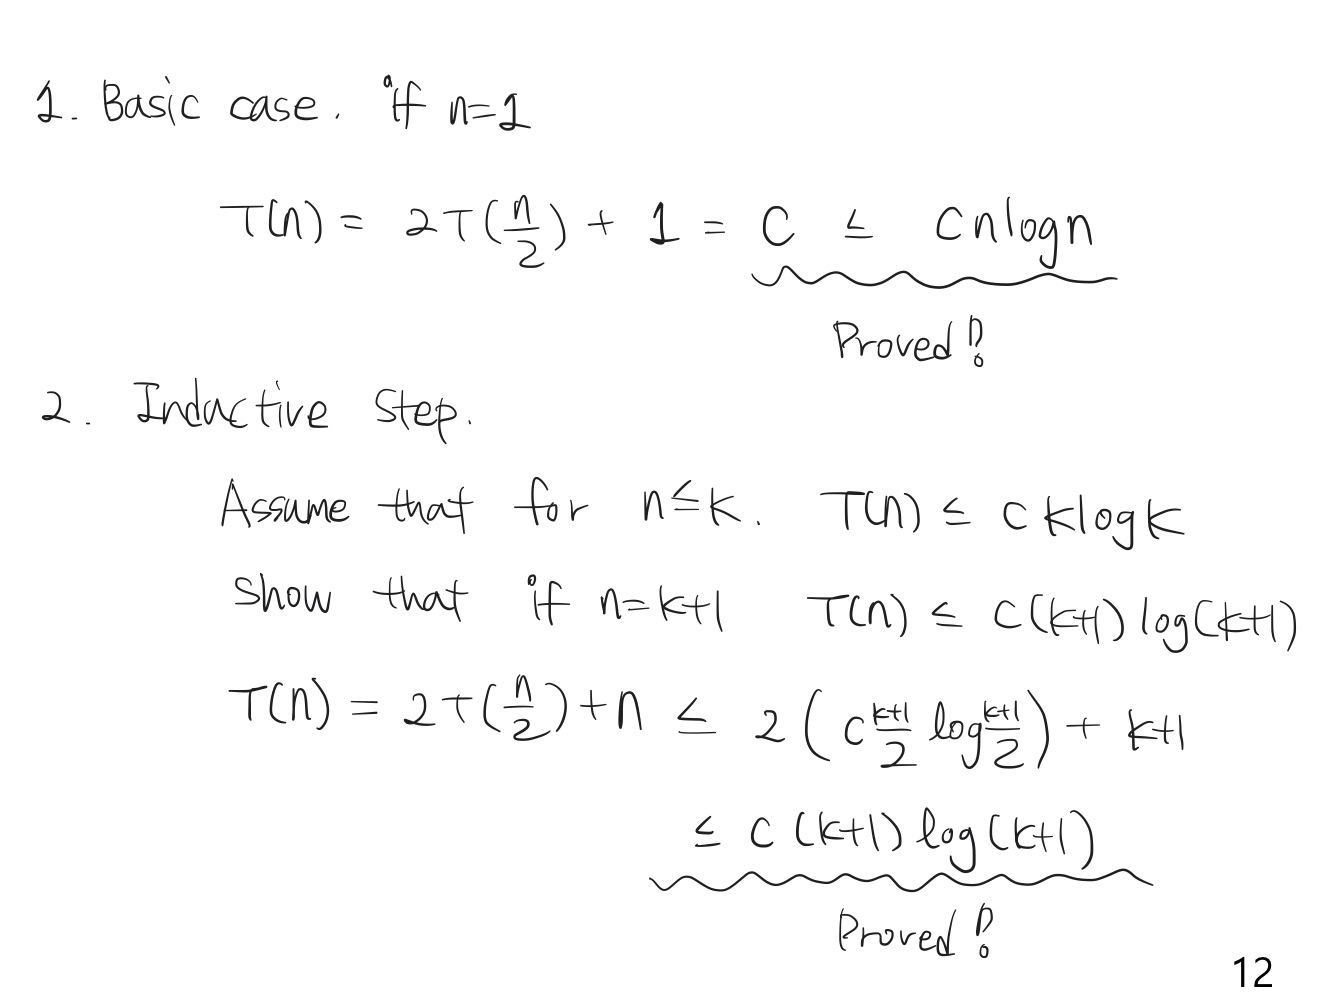 1. Basic case. if n=1
T(n) = 2T(n/2) + 1 = C ≤ cnlogn
Proved!
2. Inductive Step.
Assume that for n≤k. T(n) ≤ c klogk
show that if n=k+1 T(n) ≤ c(k+1) log(k+1)
T(n) = 2T(n/2)+n ≤ 2(c k+1/2 log k+1/2) + k+1
≤ c (k+1) log(k+1)
Proved!
12